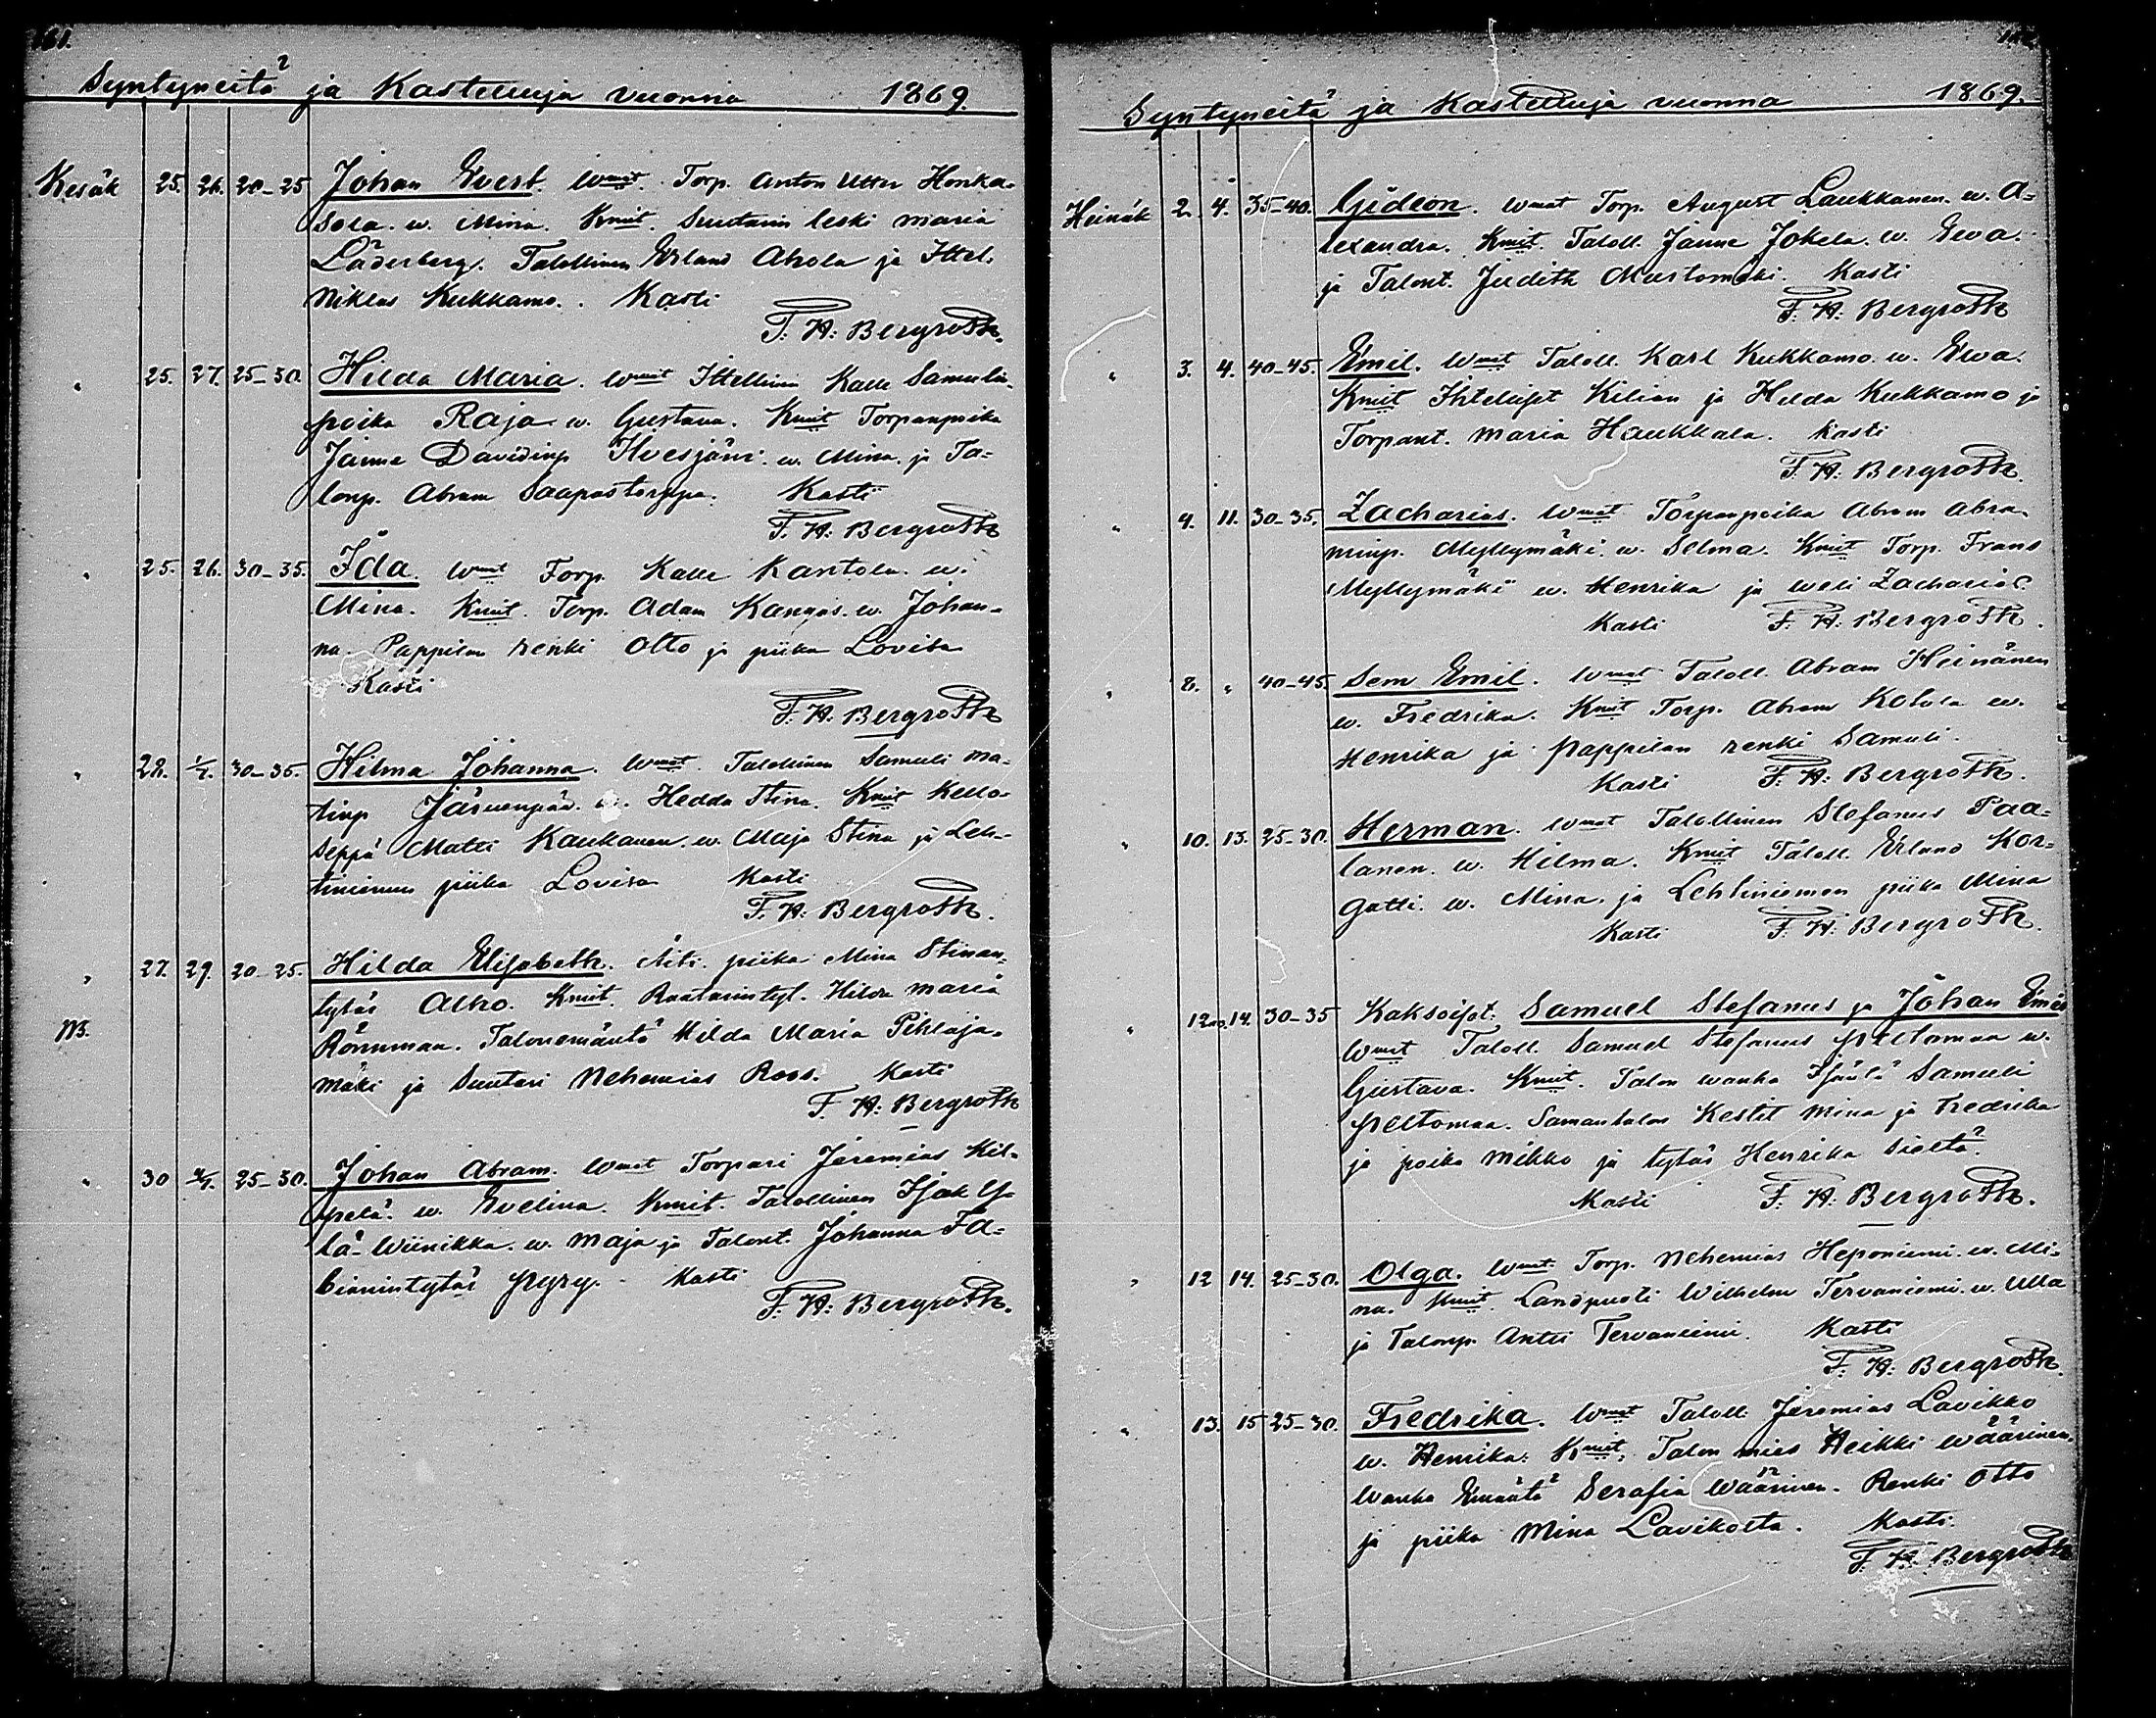 161.
Syntyneitä ja Kastetuija vuonna 1869.
Kesäk 25. 26. 20-25 Johan Evert. Wmat. Torp. Anton Utter Honka-
sola. w. Mina. Kmit. Suutarin leski Maria
Läderberg. Talollinen Erland Ahola ja Ittel.
Niklas Kukkamo. Kasti
F. H: Bergroth.
" 25. 27. 25-30. Hilda Maria. Wmat Ittellinen Kalle Samulin-
poika Raja w. Gustava. Kmit Torpanpoika
Janne Davidinp Ilvesjärvi. w. Mina. ja Ta-
lonp. Abram Saapastorppa. Kasti
F. H: Bergroth
" 25. 26. 30-35. Ida. Wmat Torp. Kalle Kantola. w.
Mina. Kmit. Torp. Adam Kangas. w. Johan-
na. Pappilan renki Otto ja piika Lovisa
Kasti
F. H: Bergroth
" 28. 1/7. 30-35. Hilma Johanna. Wmat. Talollinen Samuli Ma-
tinp Järvenpää. w. Hedda Stina. Kmit Kello-
seppä Matti Kaukanen. w. Maja Stina ja Leh-
tiniemen piika Lovisa Kasti
F. H: Bergroth.
" 27. 29. 20-25. Hilda Elisabeth. Äiti. piika Mina Stinan-
tytär Alho. Kmit. Raatarintyt. Hilda Maria
NB. Rönnman. Talonemäntä Hilda Maria Pihlaja-
mäki ja Suutari Nehemias Roos. Kasti
F. H: Bergroth
" 30 4/7. 25-30. Johan Abram. Wmat Torpari Jeremias Kil-
pelä. w. Evelina. Kmit. Talollinen Isak Y-
lä-Wiinikka. w. Maja ja Talont. Johanna Fa-
bianintytär Pyry. Kasti
F. H: Bergroth.
Syntyneitä ja Kastetuija vuonna 1869.
Heinäk 2. 4. 35-40. Gideon. Wmat Torp. August Laukkanen. w. A-
lexandra. Kmit. Taloll. Janne Jokela. w. Eeva.
ja Talont. Judith Martomäki. Kasti
F. H: Bergroth
" 3. 4. 40-45. Emil. Wmat Taloll. Karl Kukkamo. w. Ewa.
Kmit Ihtelliset Kilian ja Hilda Kukkamo ja
Torpant. Maria Haukkala. Kasti
F. H: Bergroth.
" 4. 11. 30-35. Zacharias. Wmat Torpanpoika Abram Abra-
minp. Myllymäki. w. Selma. Kmit Torp. Frans
Myllymäki w. Henrika ja weli Zacharias
Kasti F. H: Bergroth.
" 8. " 40-45. Sem Emil. Wmat Taloll. Abram Heinänen
w. Fredrika. Kmit Torp. Abram Kotola w.
Henrika ja pappilan renki Samuli.
Kasti F. H: Bergroth.
" 10. 13. 25-30. Herman. Wmat Talollinen Stefanus Paa-
lanen. w. Hilma. Kmit Taloll. Erland Kor-
gatti. w. Mina. ja Lehtiniemen piika Mina
Kasti F. H: Bergroth.
" 12 14. 30-35 Kaksoiset. Samuel Stefanus ja Johan Emil
Wmat Taloll. Samuel Stefanus Peltomaa w.
Gustava. Kmit. Talon wanha Isäntä Samuli
Peltomaa. Samantalon Kestit Mina ja Fredrika
ja poika Mikko ja tytär Henrika sieltä.
Kasti F. H: Bergroth.
" 12 14. 25-30. Olga. Wmat Torp. Nehemias Heponiemi. w. Mi-
na. Kmit. Landpuoti Wilhelm Tervaniemi. w. Ulla
ja Talonp. Antti Tervaniemi. Kasti
F. H: Bergroth.
" 13. 15 25-30. Fredrika. Wmat Taloll. Jeremias Lavikko
w. Henrika. Kmit. Talon mies Heikki Wäärinen.
Wanha Emäntä Serafia Wäärinen. Renki Otto
ja piika Mina Lavikolta. Kasti.
F. H. Bergroth